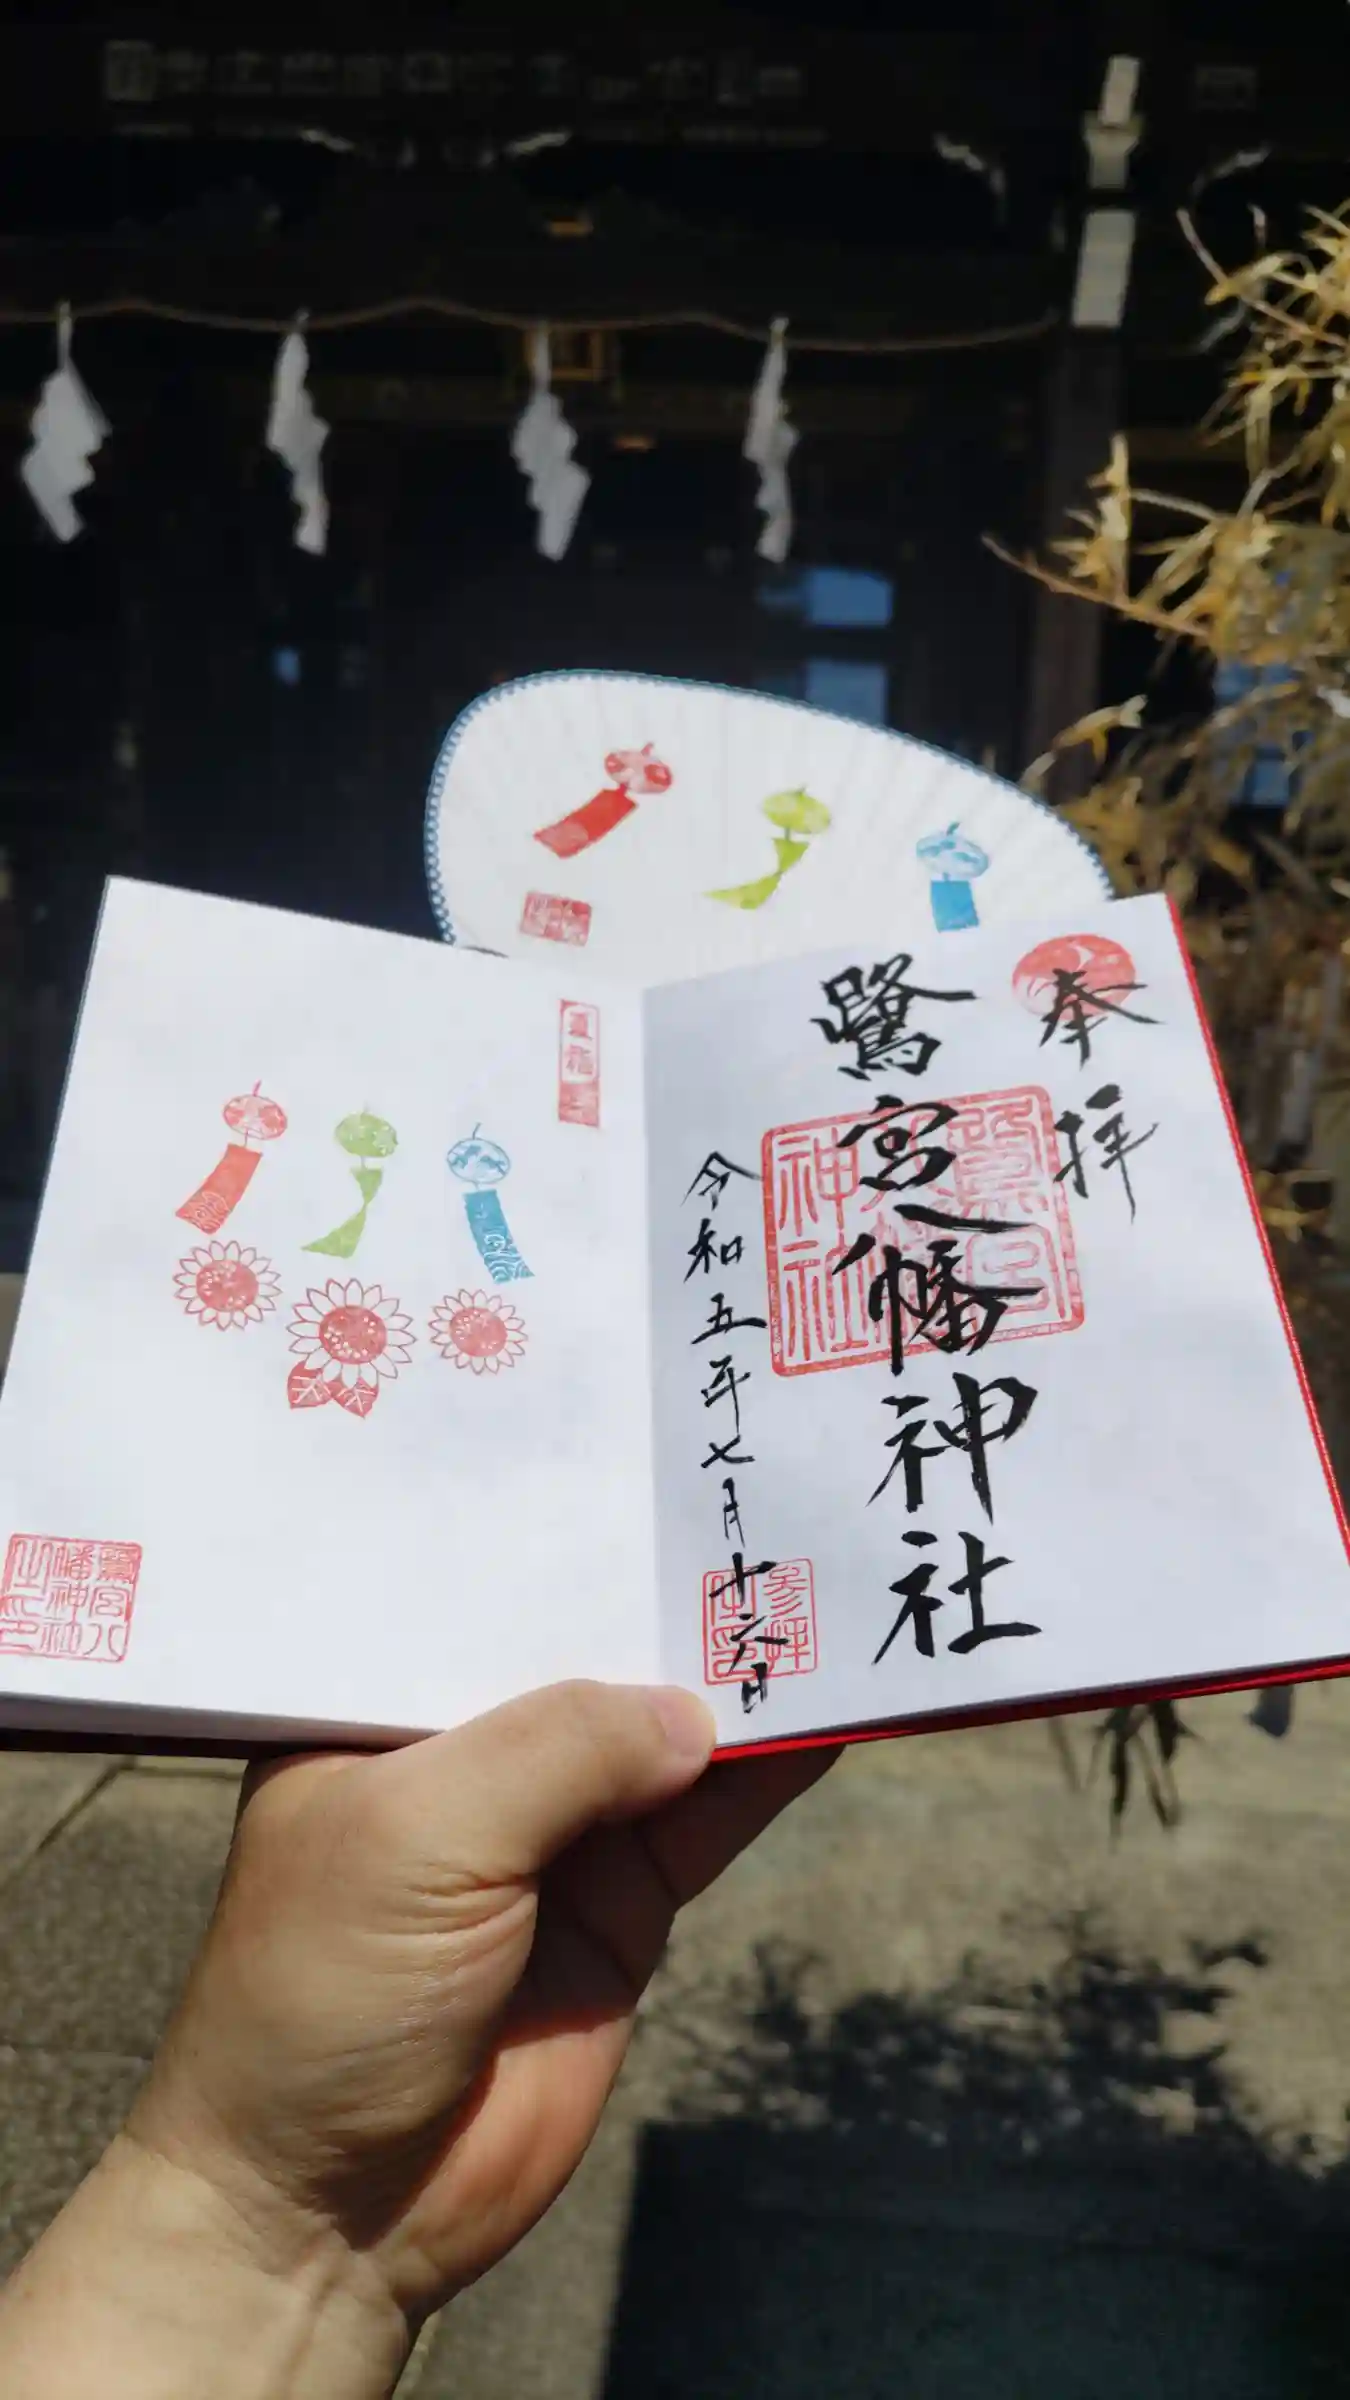 奉拝
鷺宮八幡神社
令和五年七月十六日
鷺宮
八幡
神社
参拝
鷺宮八
幡神社
之印
夏詣